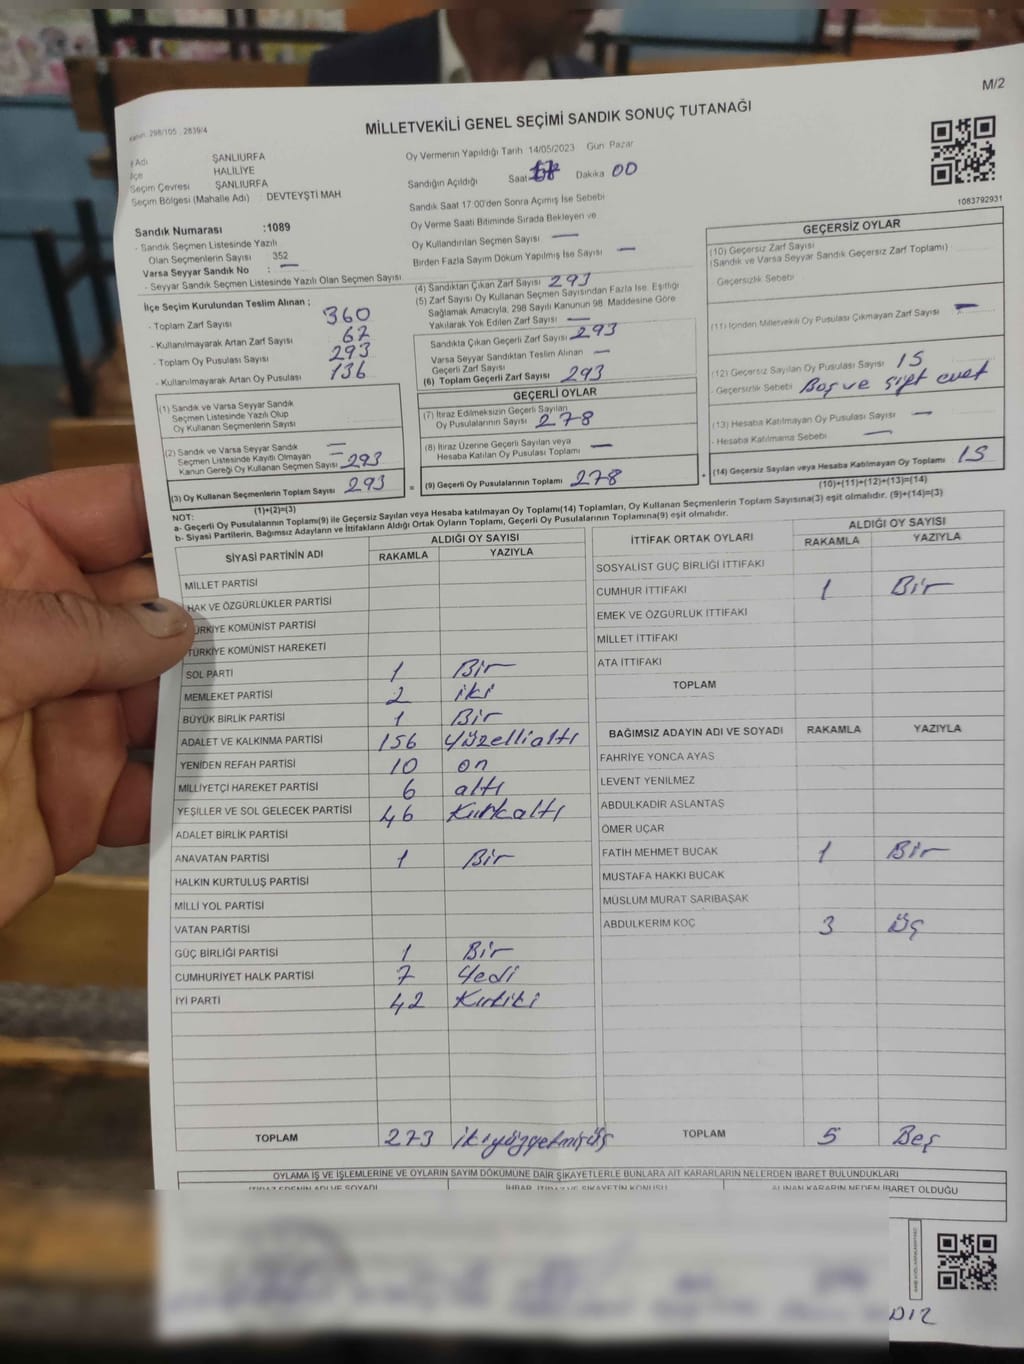 M/2
298/105 . 2839/4
MİLLETVEKİLİ GENEL SEÇİMİ SANDIK SONUÇ TUTANAĞI
Adı ŞANLIURFA
İlçe HALİLİYE
Seçim Çevresi ŞANLIURFA
Seçim Bölgesi (Mahalle Adı) : DEVTEYŞTİ MAH
Oy Vermenin Yapıldığı Tarih 14/05/2023 Gün Pazar
Sandığın Açıldığı Saat Dakika 00
Sandık Saat 17:00'den Sonra Açımış İse Sebebi
Oy Verme Saati Bitiminde Sırada Bekleyen ve
Oy Kullandırılan Seçmen Sayısı —
Birden Fazla Sayım Döküm Yapılmış İse Sayısı —
1083792931
Sandık Numarası :1089
- Sandık Seçmen Listesinde Yazılı
Olan Seçmenlerin Sayısı 352
Varsa Seyyar Sandık No : —
- Seyyar Sandık Seçmen Listesinde Yazılı Olan Seçmen Sayısı
İlçe Seçim Kurulundan Teslim Alınan ;
- Toplam Zarf Sayısı 360
- Kullanılmayarak Artan Zarf Sayısı 67
- Toplam Oy Pusulası Sayısı 293
- Kullanılmayarak Artan Oy Pusulası 136
(1) Sandık ve Varsa Seyyar Sandık
Seçmen Listesinde Yazılı Olup
Oy Kullanan Seçmenlerin Sayısı
(2) Sandık ve Varsa Seyyar Sandık
Seçmen Listesinde Kayıtlı Olmayan
Kanun Gereği Oy Kullanan Seçmen Sayısı 293
(3) Oy Kullanan Seçmenlerin Toplam Sayısı 293
(1)+(2)=(3)
(4) Sandıktan Çıkan Zarf Sayısı 293
(5) Zarf Sayısı Oy Kullanan Seçmen Sayısından Fazla İse, Eşitliği
Sağlamak Amacıyla, 298 Sayılı Kanunun 98. Maddesine Göre
Yakılarak Yok Edilen Zarf Sayısı —
Sandıkta Çıkan Geçerli Zarf Sayısı 293
Varsa Seyyar Sandıktan Teslim Alınan
Geçerli Zarf Sayısı —
(6) Toplam Geçerli Zarf Sayısı 293
GEÇERLİ OYLAR
(7) İtiraz Edilmeksizin Geçerli Sayılan
Oy Pusulalarının Sayısı 278
(8) İtiraz Üzerine Geçerli Sayılan veya
Hesaba Katılan Oy Pusulası Toplamı —
= (9) Geçerli Oy Pusulalarının Toplamı 278 +
GEÇERSİZ OYLAR
(10) Geçersiz Zarf Sayısı
(Sandık ve Varsa Seyyar Sandık Geçersiz Zarf Toplamı)
Geçersizlik Sebebi
(11) İçinden Milletvekili Oy Pusulası Çıkmayan Zarf Sayısı —
(12) Geçersiz Sayılan Oy Pusulası Sayısı 15
- Geçersizlik Sebebi Boş ve şift evet
(13) Hesaba Katılmayan Oy Pusulası Sayısı —
- Hesaba Katılmama Sebebi —
(14) Geçersiz Sayılan veya Hesaba Katılmayan Oy Toplamı 15
(10)+(11)+(12)+(13)=(14)
NOT:
a- Geçerli Oy Pusulalarının Toplamı(9) ile Geçersiz Sayılan veya Hesaba katılmayan Oy Toplamı(14) Toplamları, Oy Kullanan Seçmenlerin Toplam Sayısına(3) eşit olmalıdır. (9)+(14)=(3)
b- Siyasi Partilerin, Bağımsız Adayların ve İttifakların Aldığı Ortak Oyların Toplamı, Geçerli Oy Pusulalarının Toplamına(9) eşit olmalıdır.
SİYASİ PARTİNİN ADI ALDIĞI OY SAYISI
RAKAMLA YAZIYLA
MİLLET PARTİSİ
HAK VE ÖZGÜRLÜKLER PARTİSİ
TÜRKİYE KOMÜNİST PARTİSİ
TÜRKİYE KOMÜNİST HAREKETİ
SOL PARTİ 1 Bir
MEMLEKET PARTİSİ 2 iki
BÜYÜK BİRLİK PARTİSİ 1 Bir
ADALET VE KALKINMA PARTİSİ 156 Yüzellialtı
YENİDEN REFAH PARTİSİ 10 on
MİLLİYETÇİ HAREKET PARTİSİ 6 altı
YEŞİLLER VE SOL GELECEK PARTİSİ 46 Kırkaltı
ADALET BİRLİK PARTİSİ
ANAVATAN PARTİSİ 1 Bir
HALKIN KURTULUŞ PARTİSİ
MİLLİ YOL PARTİSİ
VATAN PARTİSİ
GÜÇ BİRLİĞİ PARTİSİ 1 Bir
CUMHURİYET HALK PARTİSİ 7 Yedi
İYİ PARTİ 42 Kırkiki
TOPLAM 273 ikiyüzyetmişüç
İTTİFAK ORTAK OYLARI ALDIĞI OY SAYISI
RAKAMLA YAZIYLA
SOSYALİST GÜÇ BİRLİĞİ İTTİFAKI
CUMHUR İTTİFAKI 1 Bir
EMEK VE ÖZGÜRLÜK İTTİFAKI
MİLLET İTTİFAKI
ATA İTTİFAKI
TOPLAM
BAĞIMSIZ ADAYIN ADI VE SOYADI RAKAMLA YAZIYLA
FAHRİYE YONCA AYAS
LEVENT YENİLMEZ
ABDULKADİR ASLANTAŞ
ÖMER UÇAR
FATİH MEHMET BUCAK 1 Bir
MUSTAFA HAKKI BUCAK
MÜSLÜM MURAT SARIBAŞAK
ABDULKERİM KOÇ 3 Üç
TOPLAM 5 Beş
OYLAMA İŞ VE İŞLEMLERİNE VE OYLARIN SAYIM DÖKÜMÜNE DAİR ŞİKAYETLERLE BUNLARA AİT KARARLARIN NELERDEN İBARET BULUNDUKLARI
İTİRAZ EDENİN ADI VE SOYADI İHBAR, İTİRAZ VE ŞİKAYETİN KONUSU ALINAN KARARIN NEDEN İBARET OLDUĞU